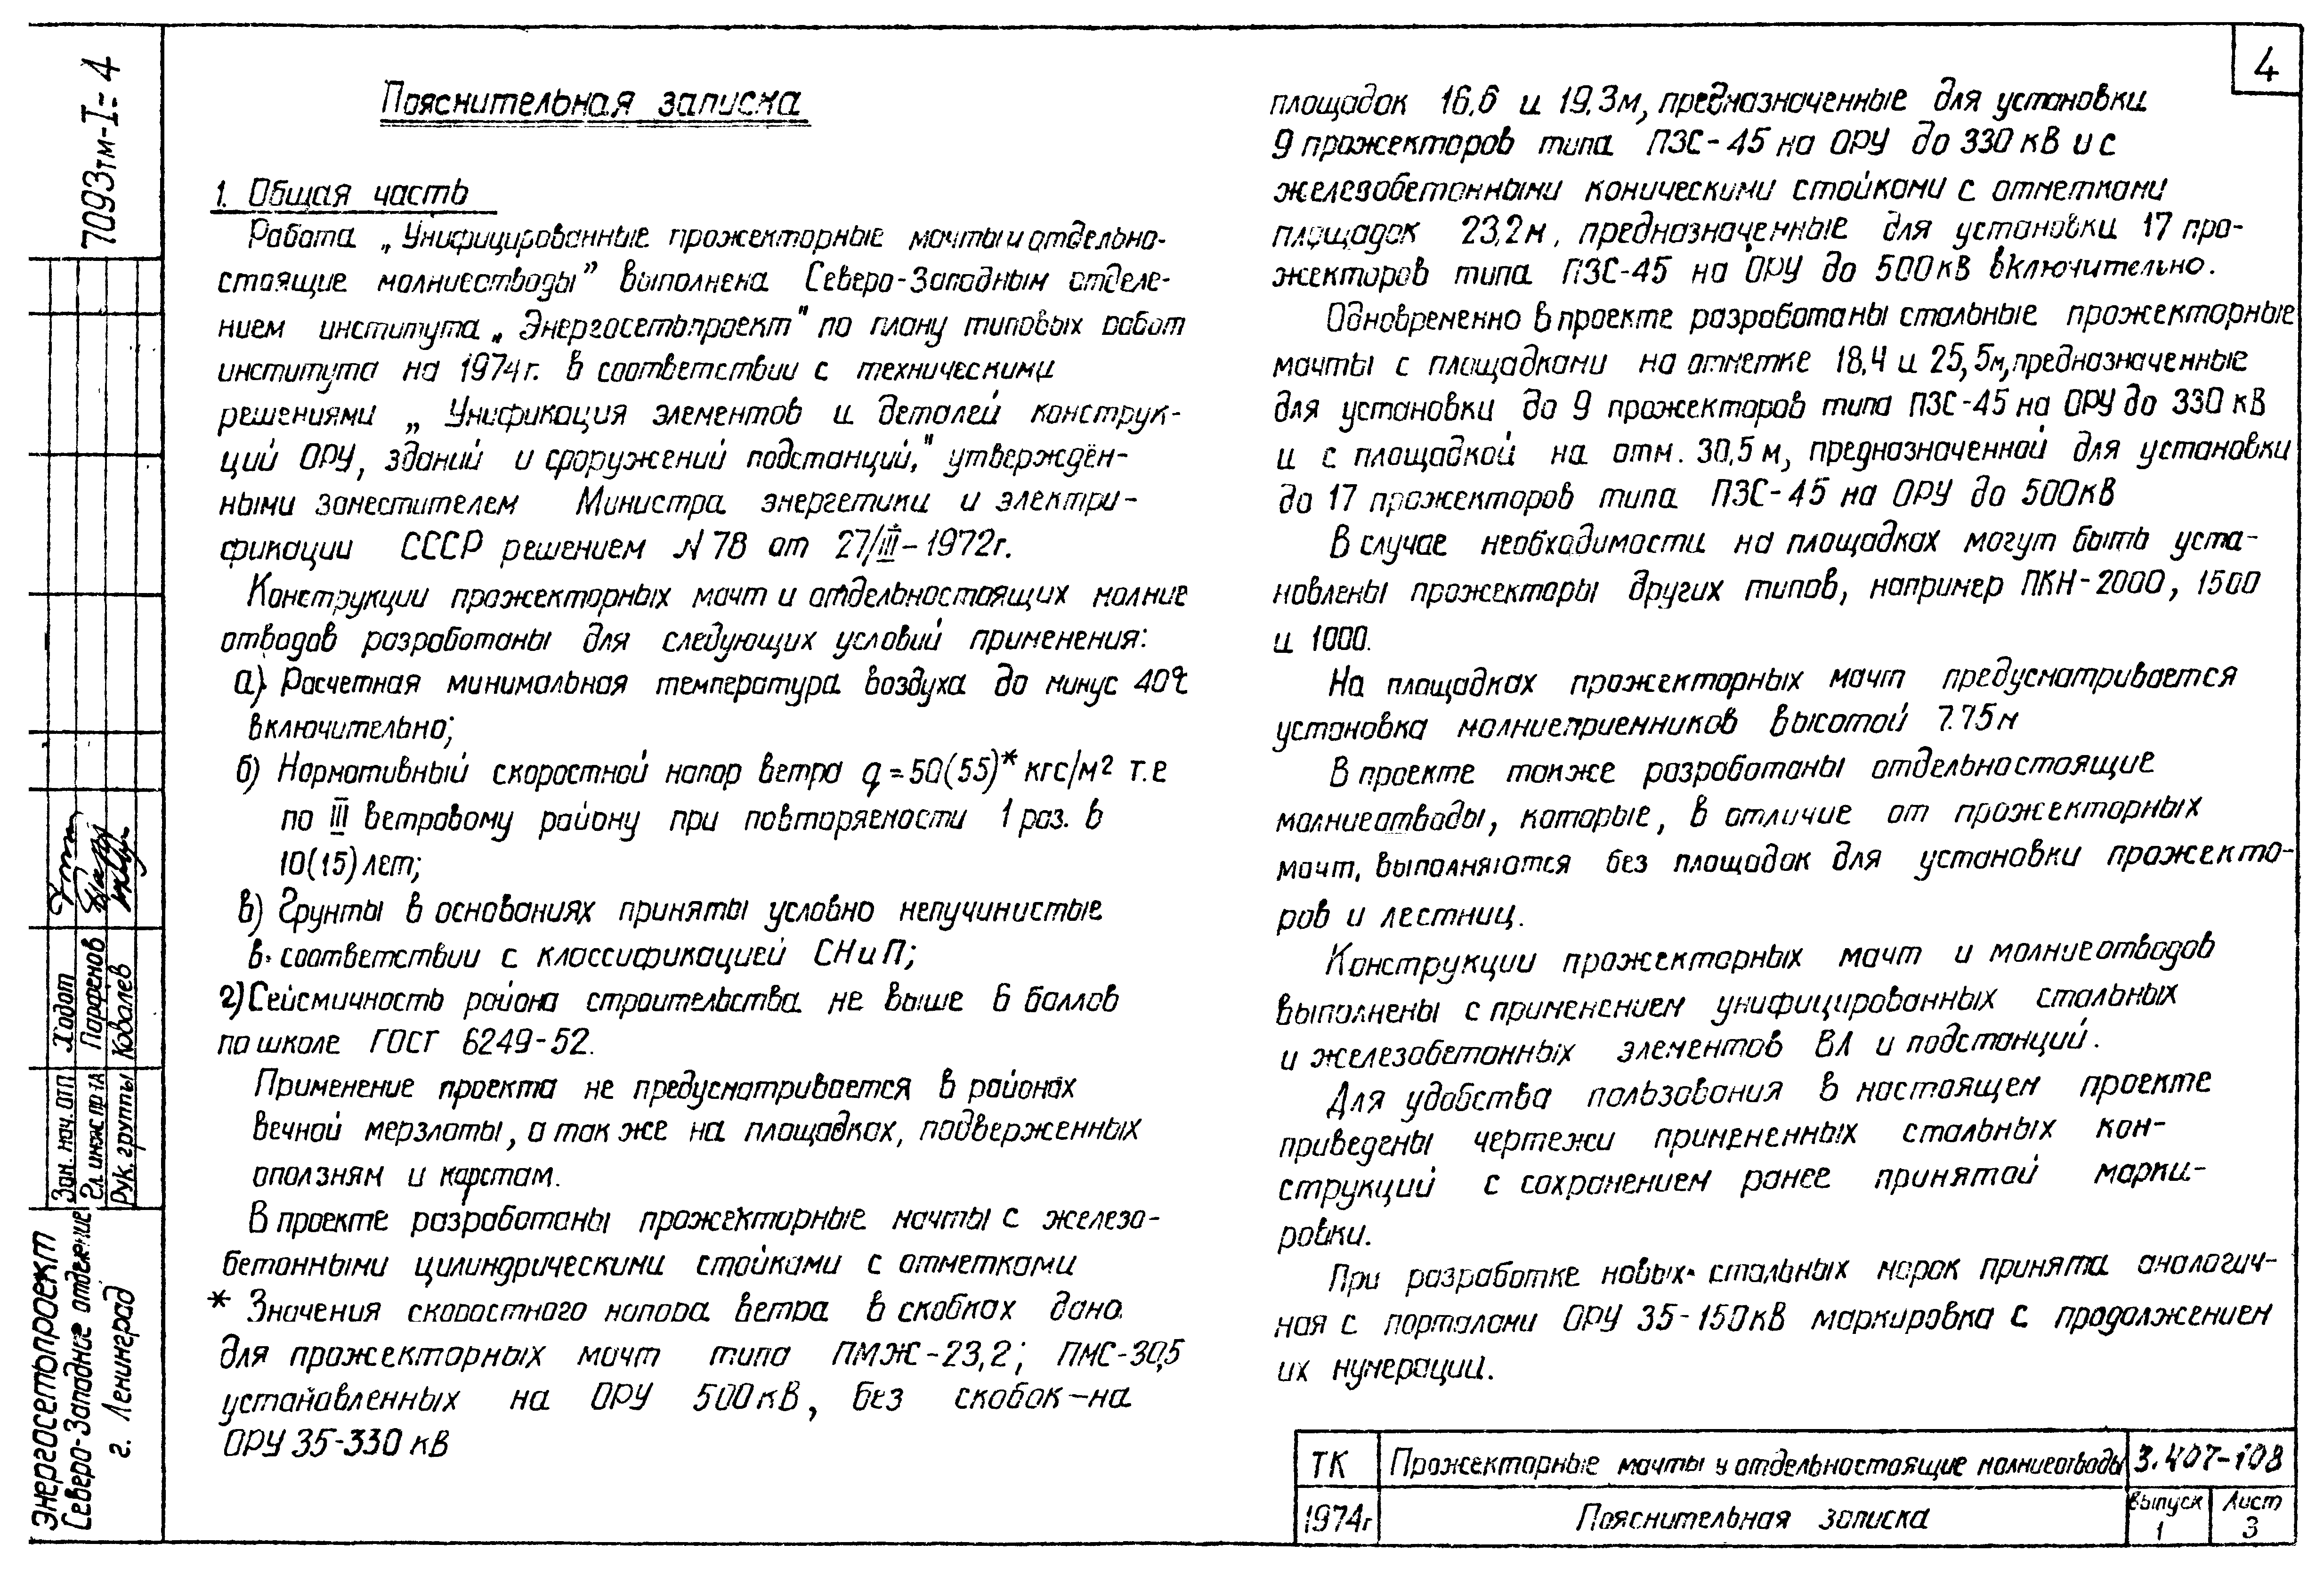 4
7093тм-I-4
Пояснительная записка
1. Общая часть
Работа „Унифицированные прожекторные мачты и отдельно-
стоящие молниеотводы” выполнена Северо-Западным отделе-
нием института „Энергосетьпроект" по плану типовых работ
института на 1974г. в соответствии с техническими
решениями „Унификация элементов и деталей конструк-
ций ОРУ, зданий и сооружений подстанций," утверждён-
ными заместителем Министра энергетики и электри-
фикации СССР решением N 78 от 27/III-1972г.
Конструкции прожекторных мачт и отдельностоящих молние
отводов разработаны для следующих условий применения:
а) Расчетная минимальная температура воздуха до минус 40°С
включительно;
б) Нормативный скоростной напор ветра q=50(55)* кгс/м² т.е
по III ветровому району при повторяемости 1 раз. в
10(15) лет;
в) Грунты в основаниях приняты условно непучинистые
в соответствии с классификацией СНиП;
г) Сейсмичность района строительства не выше 6 баллов
по шкале ГОСТ 6249-52.
Применение проекта не предусматривается в районах
вечной мерзлоты, а так же на площадках, подверженных
оползням и карстам.
В проекте разработаны прожекторные мачты с железо-
бетонными цилиндрическими стойками с отметками
* Значения скоростного напора ветра в скобках дано
для прожекторных мачт типа ПМЖ-23,2; ПМС-30,5
установленных на ОРУ 500кВ, без скобок-на
ОРУ 35-330 кВ
площадок 16,6 и 19,3м, предназначенные для установки
9 прожекторов типа ПЗС-45 на ОРУ до 330 кВ и с
железобетонными коническими стойками с отметками
площадок 23,2м, предназначенные для установки 17 про-
жекторов типа ПЗС-45 на ОРУ до 500кВ включительно.
Одновременно в проекте разработаны стальные прожекторные
мачты с площадками на отметке 18,4 и 25,5м, предназначенные
для установки до 9 прожекторов типа ПЗС-45 на ОРУ до 330 кВ
и с площадкой на отм. 30,5 м, предназначенной для установки
до 17 прожекторов типа ПЗС-45 на ОРУ до 500кВ
В случае необходимости на площадках могут быть уста-
новлены прожекторы других типов, например ПКН-2000, 1500
и 1000.
На площадках прожекторных мачт предусматривается
установка молниеприемников высотой 7.75м
В проекте также разработаны отдельностоящие
молниеотводы, которые, в отличие от прожекторных
мачт, выполняются без площадок для установки прожекто-
ров и лестниц.
Конструкции прожекторных мачт и молниеотводов
выполнены с применением унифицированных стальных
и железобетонных элементов ВЛ и подстанций.
Для удобства пользования в настоящем проекте
приведены чертежи примененных стальных кон-
струкций с сохранением ранее принятой марки-
ровки.
При разработке новых стальных марок принята аналогич-
ная с порталами ОРУ 35-150кВ маркировка с продолжением
их нумерации.
Зам. нач. ОТП Ходот
Гл. инж. пр-та Парфенов
Рук. группы Ковалев
Энергосетьпроект
Северо-Западное отделение
г. Ленинград
ТК Прожекторные мачты и отдельностоящие молниеотводы 3.407-108
1974г Пояснительная записка Выпуск 1 Лист 3